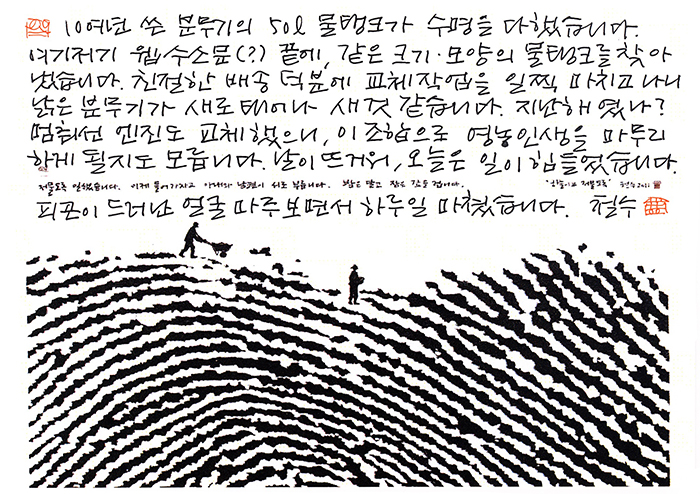 10여년 쓴 분무기의 50ℓ 물탱크가 수명을 다했습니다.
여기저기 웹수소문(?) 끝에, 같은 크기·모양의 물탱크를 찾아
냈습니다. 친절한 배송 덕분에 교체작업을 일찍 마치고 나니
낡은 분무기가 새로 태어나 새것 같습니다. 지난해 였나?
멈춰선 엔진도 교체했으니, 이 조합으로 영농인생을 마무리
하게 될지도 모릅니다. 날이 뜨거워, 오늘은 일이 힘들었습니다.
저물도록 일했습니다. 이제 들어가자고 아내와 남편이 서로 부릅니다. 밤은 깊고 잠은 갚을 겁니다. '하늘이고 저물도록' 철수 2021
피곤이 드러난 얼굴 마주 보면서 하루일 마쳤습니다. 철수